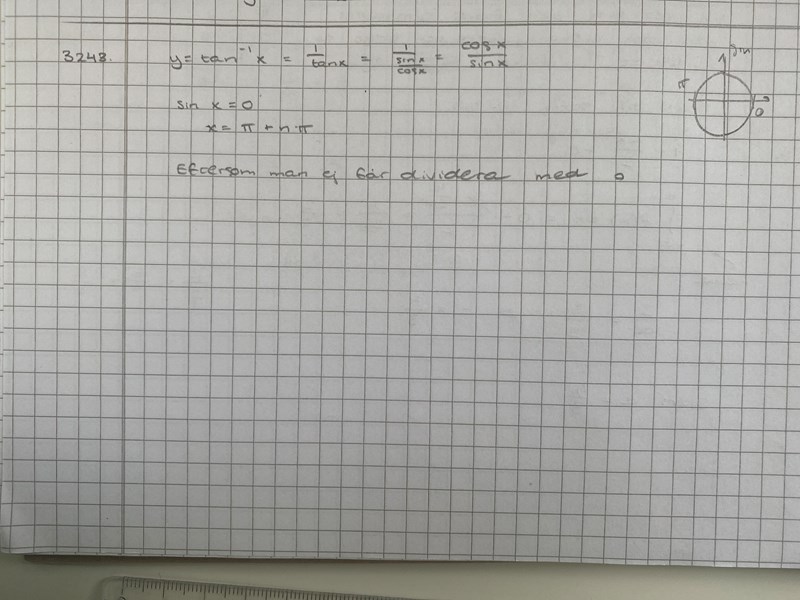 3248. y = tan⁻¹ x = 1/tan x = 1/(sin x/cos x) = cos x/sin x
sin
π
0
sin x = 0
x = π + n·π
Eftersom man ej får dividera med 0